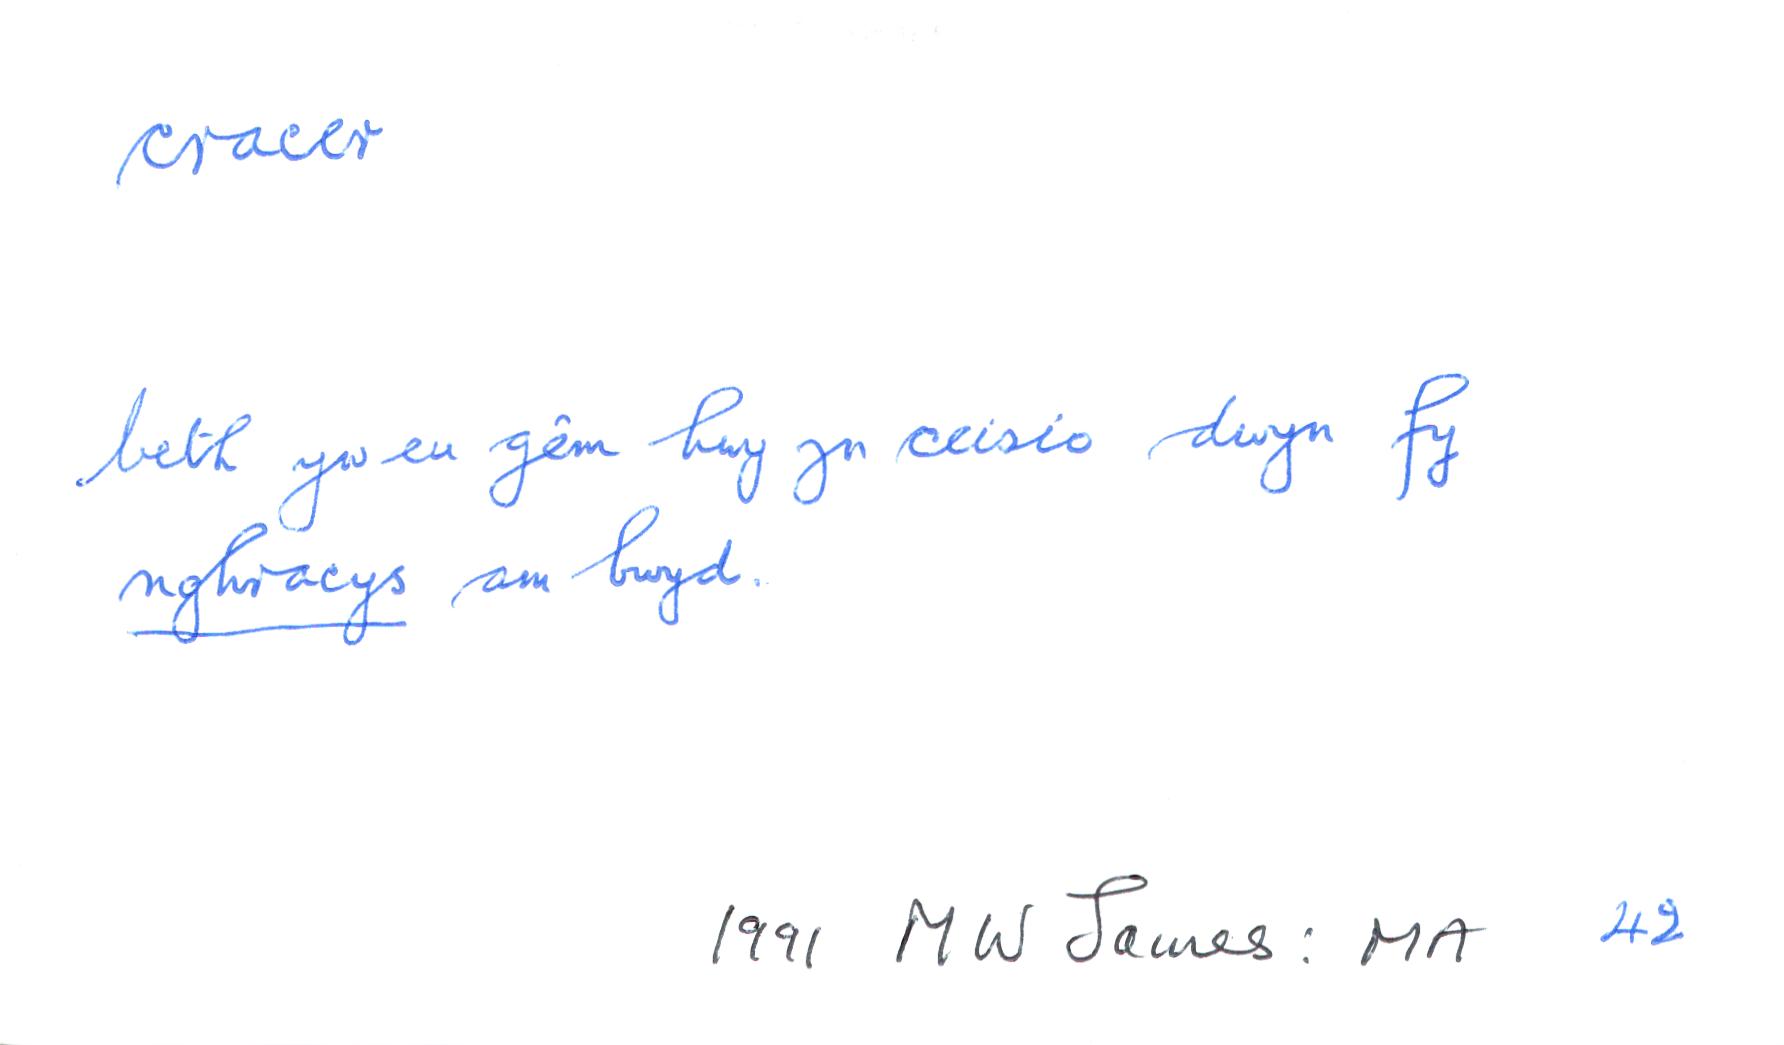 cracer
beth yw eu gêm hwy yn ceisio dwyn fy
nghracys am bwyd.
1991 MW James: MA 42